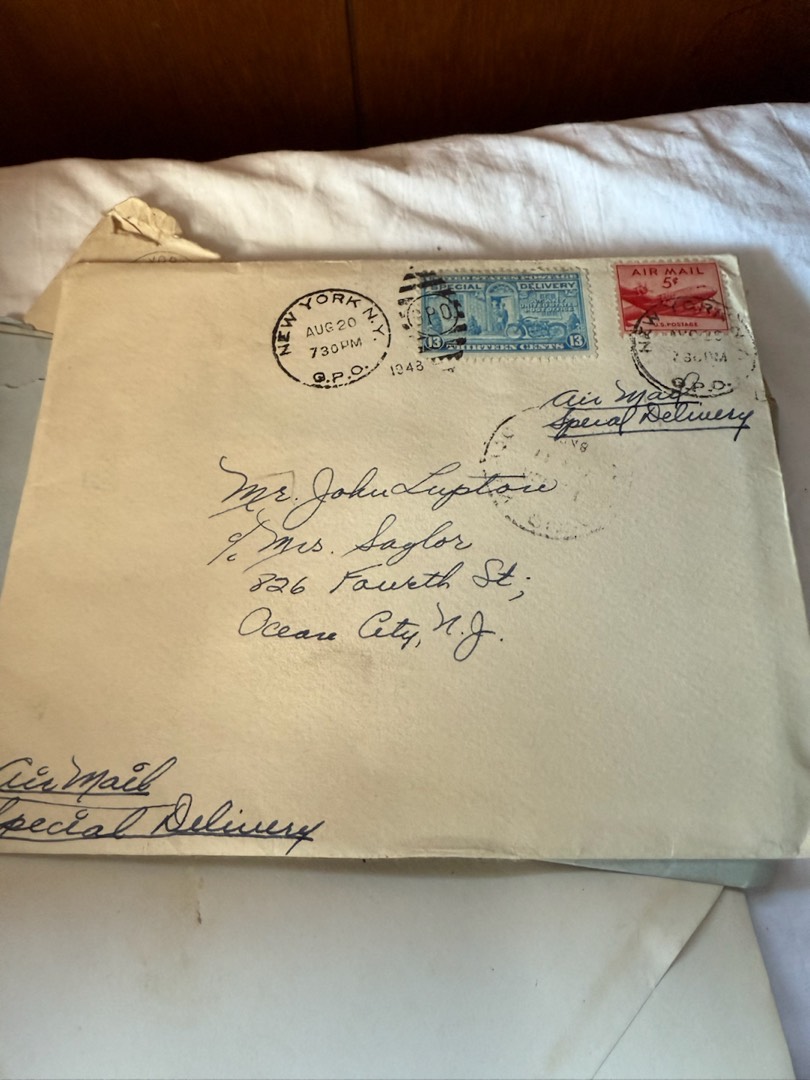 NEW YORK N.Y.
AUG 20
730 PM
G.P.O.
1948
UNITED STATES POSTAGE
SPECIAL DELIVERY
13 THIRTEEN CENTS 13
AIR MAIL
5¢
U.S. POSTAGE
NEW YORK
AUG 20
730 PM
G.P.O.
Air Mail
Special Delivery
Mr. John Lupton
c/o Mrs. Saylor
826 Fourth St;
Ocean City, N.J.
Air Mail
Special Delivery